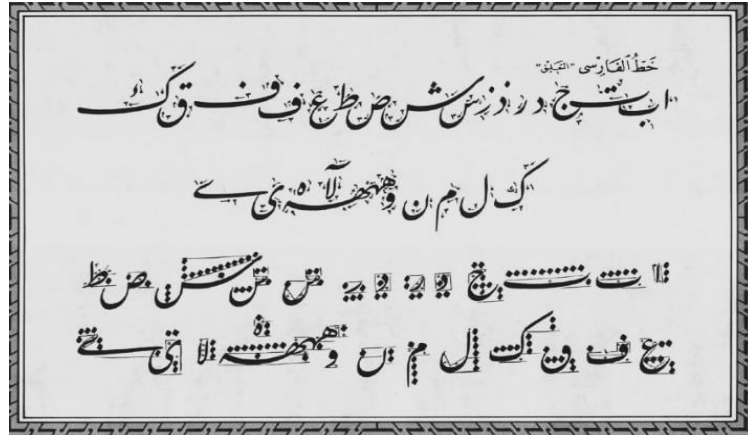 خَطُّ الفَارِسِى "التَعليق"
ا ب ت ج د ر ذ ز س ش ص ط ع ف ف ق ك
ك ل م ن و ه ه ه لا ه ى ے
ا ت ب چ د ر د ر س س ش ص ط
ع ف ق ك ل م ن و ه ه ه لا ى ے